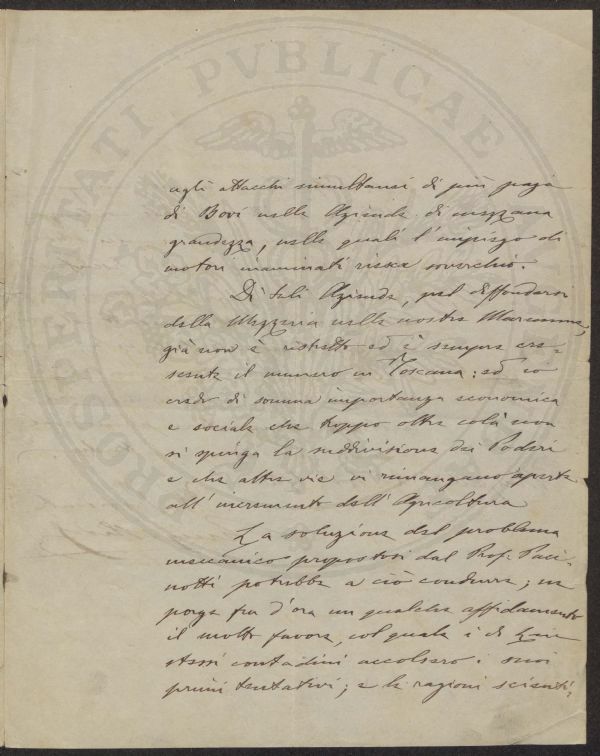 PROSPERITATI PVBLICAE
agli attacchi simultanei di più paja
di Bovi nelle Aziende di mezzana
grandezza, nelle quali l'impiego di
motori inanimati riesca soverchio.
Di tali Aziende, pel diffondersi
della Mezzeria nelle nostre Maremme,
già non è ristretto ed è sempre cre-
scente il numero in Toscana: ed io
credo di somma importanza economica
e sociale che troppo oltre colà non
si spinga la suddivisione dei Poderi
e che altre vie vi rimangano aperte
all'incremento dell'Agricoltura
La soluzione del problema
meccanico propostosi dal Prof. Paci-
notti potrebbe a ciò condurre; ne
porge fin d'ora un qualche affidamento
il molto favore, col quale i di Lui
stessi contadini accolsero i suoi
primi tentativi; e le ragioni scienti-